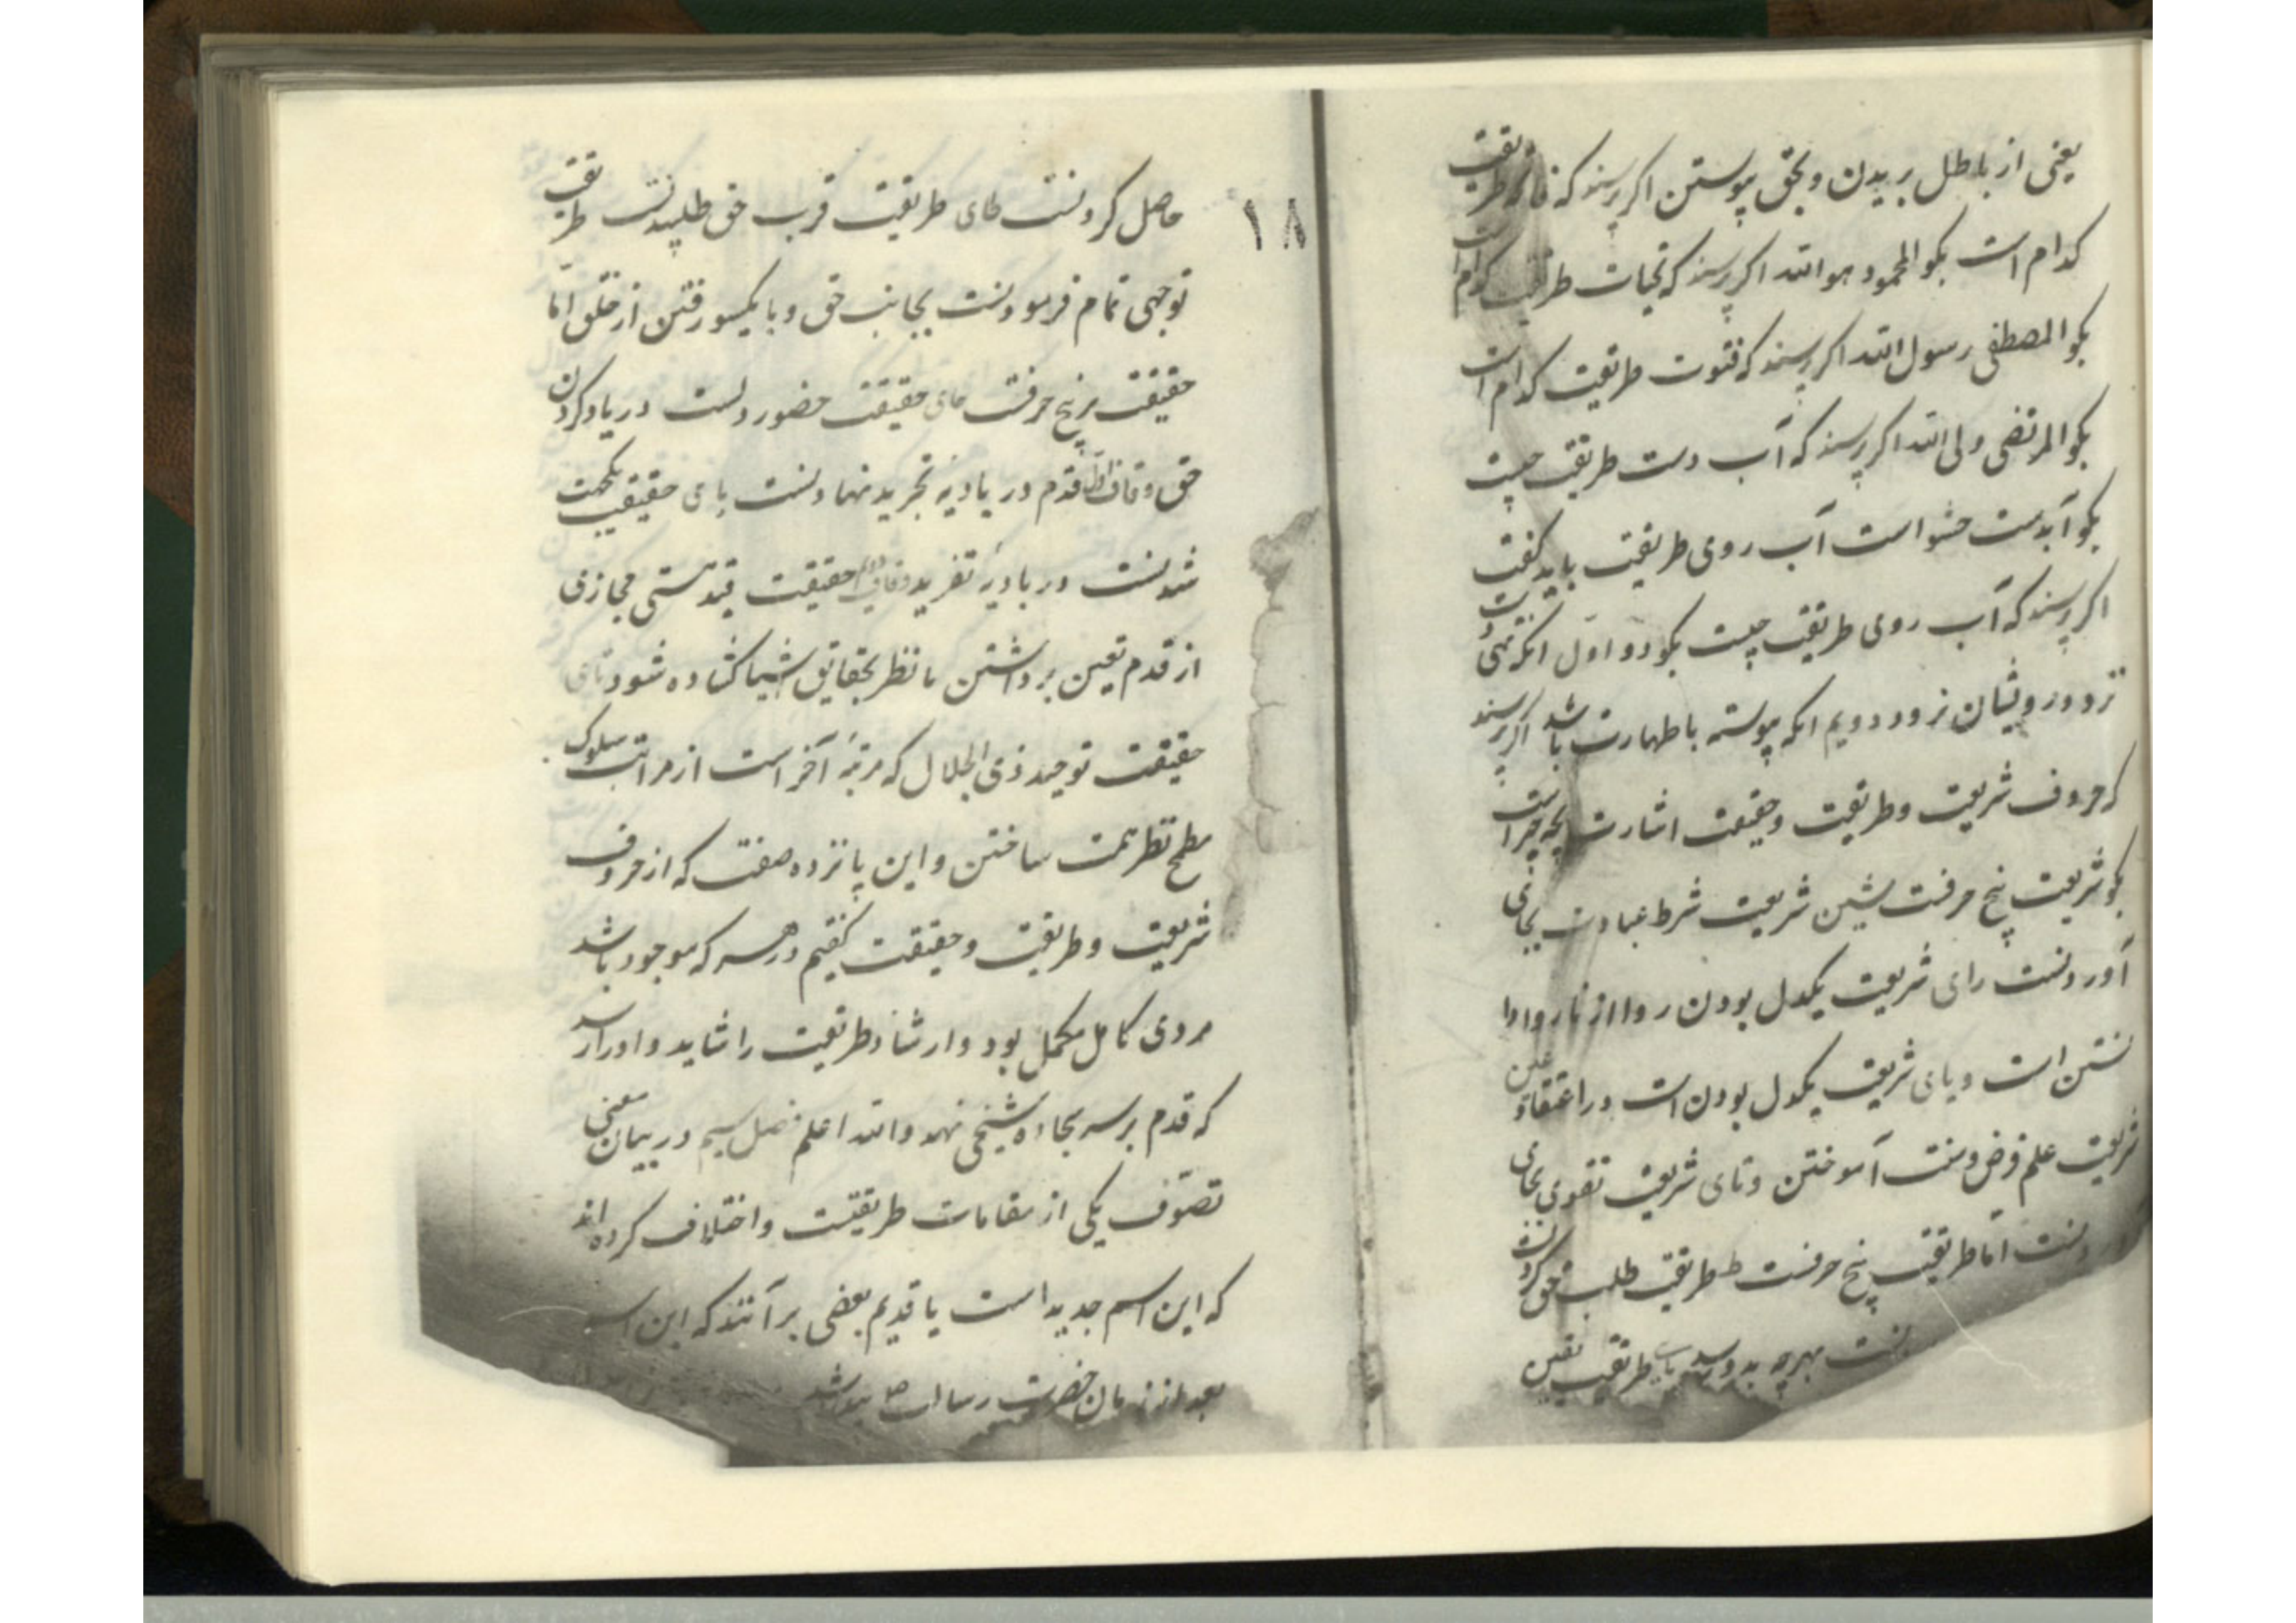 یعنی از باطل بریدن و بحق پیوستن اکر پرسند که طریقت
کدام است بکو المحمود هو الله اکر پرسند که تحیات طریقت کدام است
بکو المصطفی رسول الله اکر پرسند که قنوت طریقت کدام است
بکو المرتضی ولی الله اکر پرسند که آب دست طریقت چیست
بکو آبدست حشو است آب روی طریقت باید کفت
اکر پرسند که آب روی طریقت چیست بکو دو اول انکه تهی دست
نزد درویشان نرود دویم انکه پیوسته با طهارت باشد اکر پرسند
که حروف شریعت و طریقت و حقیقت اشارت بچه چیز است
بکو شریعت پنج حرفست شین شریعت شرط عبادت بجای
آوردنست رای شریعت یکدل بودن روا از ناروا دا
نستن است و یای شریعت یکدل بودن است در اعتقاد و عین
شریعت علم فرض و سنت آموختن و تای شریعت تقوی بجای
دنست اما طریقت پنج حرفست ط طریقت طلب حق کردنست
نست بهرچه بدو رسد یای طریقت یقین
۱۸
حاصل کردنست طای طریقت قرب حق طلبیدنست طریقت
توجهی تمام فرمودنست بجانب حق و با یکسو رفتن از خلق اما
حقیقت پنج حرفست حای حقیقت حضور دلست در یاد کردن
حق و قاف اول قدم در بادیه تجرید نهادنست یای حقیقت یکجهت
شدنست در بادیه تفرید و قاف دوم حقیقت قید هستی مجازی
از قدم تعین برداشتن تا نظر بحقایق اشیا کشاده شود تای
حقیقت توحید ذی الجلال که مرتبه آخر است از مراتب سلوک
مطمح نظر همت ساختن و این پانزده صفت که از حروف
شریعت و طریقت و حقیقت کفتیم در هر که موجود باشد
مردی کامل مکمل بود و ارشاد طریقت را شاید و او را رسد
که قدم بر سجاده شیخی نهد والله اعلم فصل سیم در بیان معنی
تصوف یکی از مقامات طریقتست و اختلاف کرده اند
که این اسم جدید است یا قدیم بعضی بر آنند که این اسم
بعد از زمان حضرت رسالت ص پیدا شد